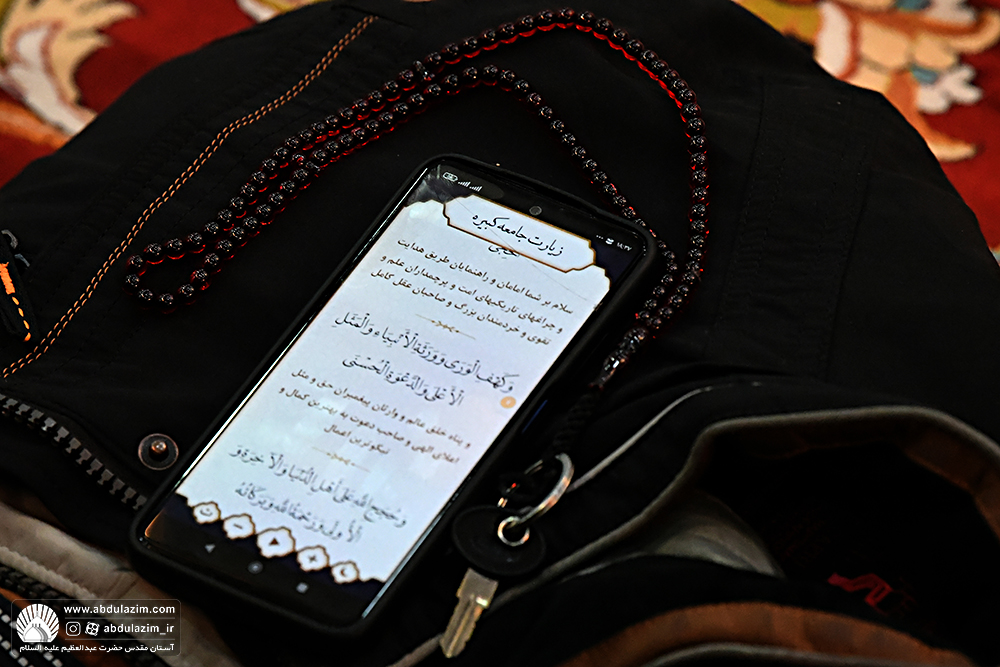 ۱۸:۳۷
زیارت جامعه کبیره
سلام بر شما امامان و راهنمایان طریق هدایت
و چراغهای تاریکیهای امت و پرچمداران علم و
تقوی و خردمندان بزرگ و صاحبان عقل کامل
وَكَهْفِ الْوَرَىٰ وَوَرَثَةِ الْأَنْبِيَاءِ وَالْمَثَلِ
الْأَعْلَىٰ وَالدَّعْوَةِ الْحُسْنَىٰ
و پناه خلق عالم و وارثان پیغمبران حق و مثل
اعلای الهی و صاحب دعوت به بهترین کمال و
نیکوترین اعمال
وَحُجَجِ اللّٰهِ عَلَىٰ أَهْلِ الدُّنْيَا وَالْآخِرَةِ وَ
الْأُولَىٰ وَرَحْمَةُ اللّٰهِ وَبَرَكَاتُهُ
www.abdulazim.com
abdulazim_ir
آستان مقدس حضرت عبدالعظیم علیه السلام